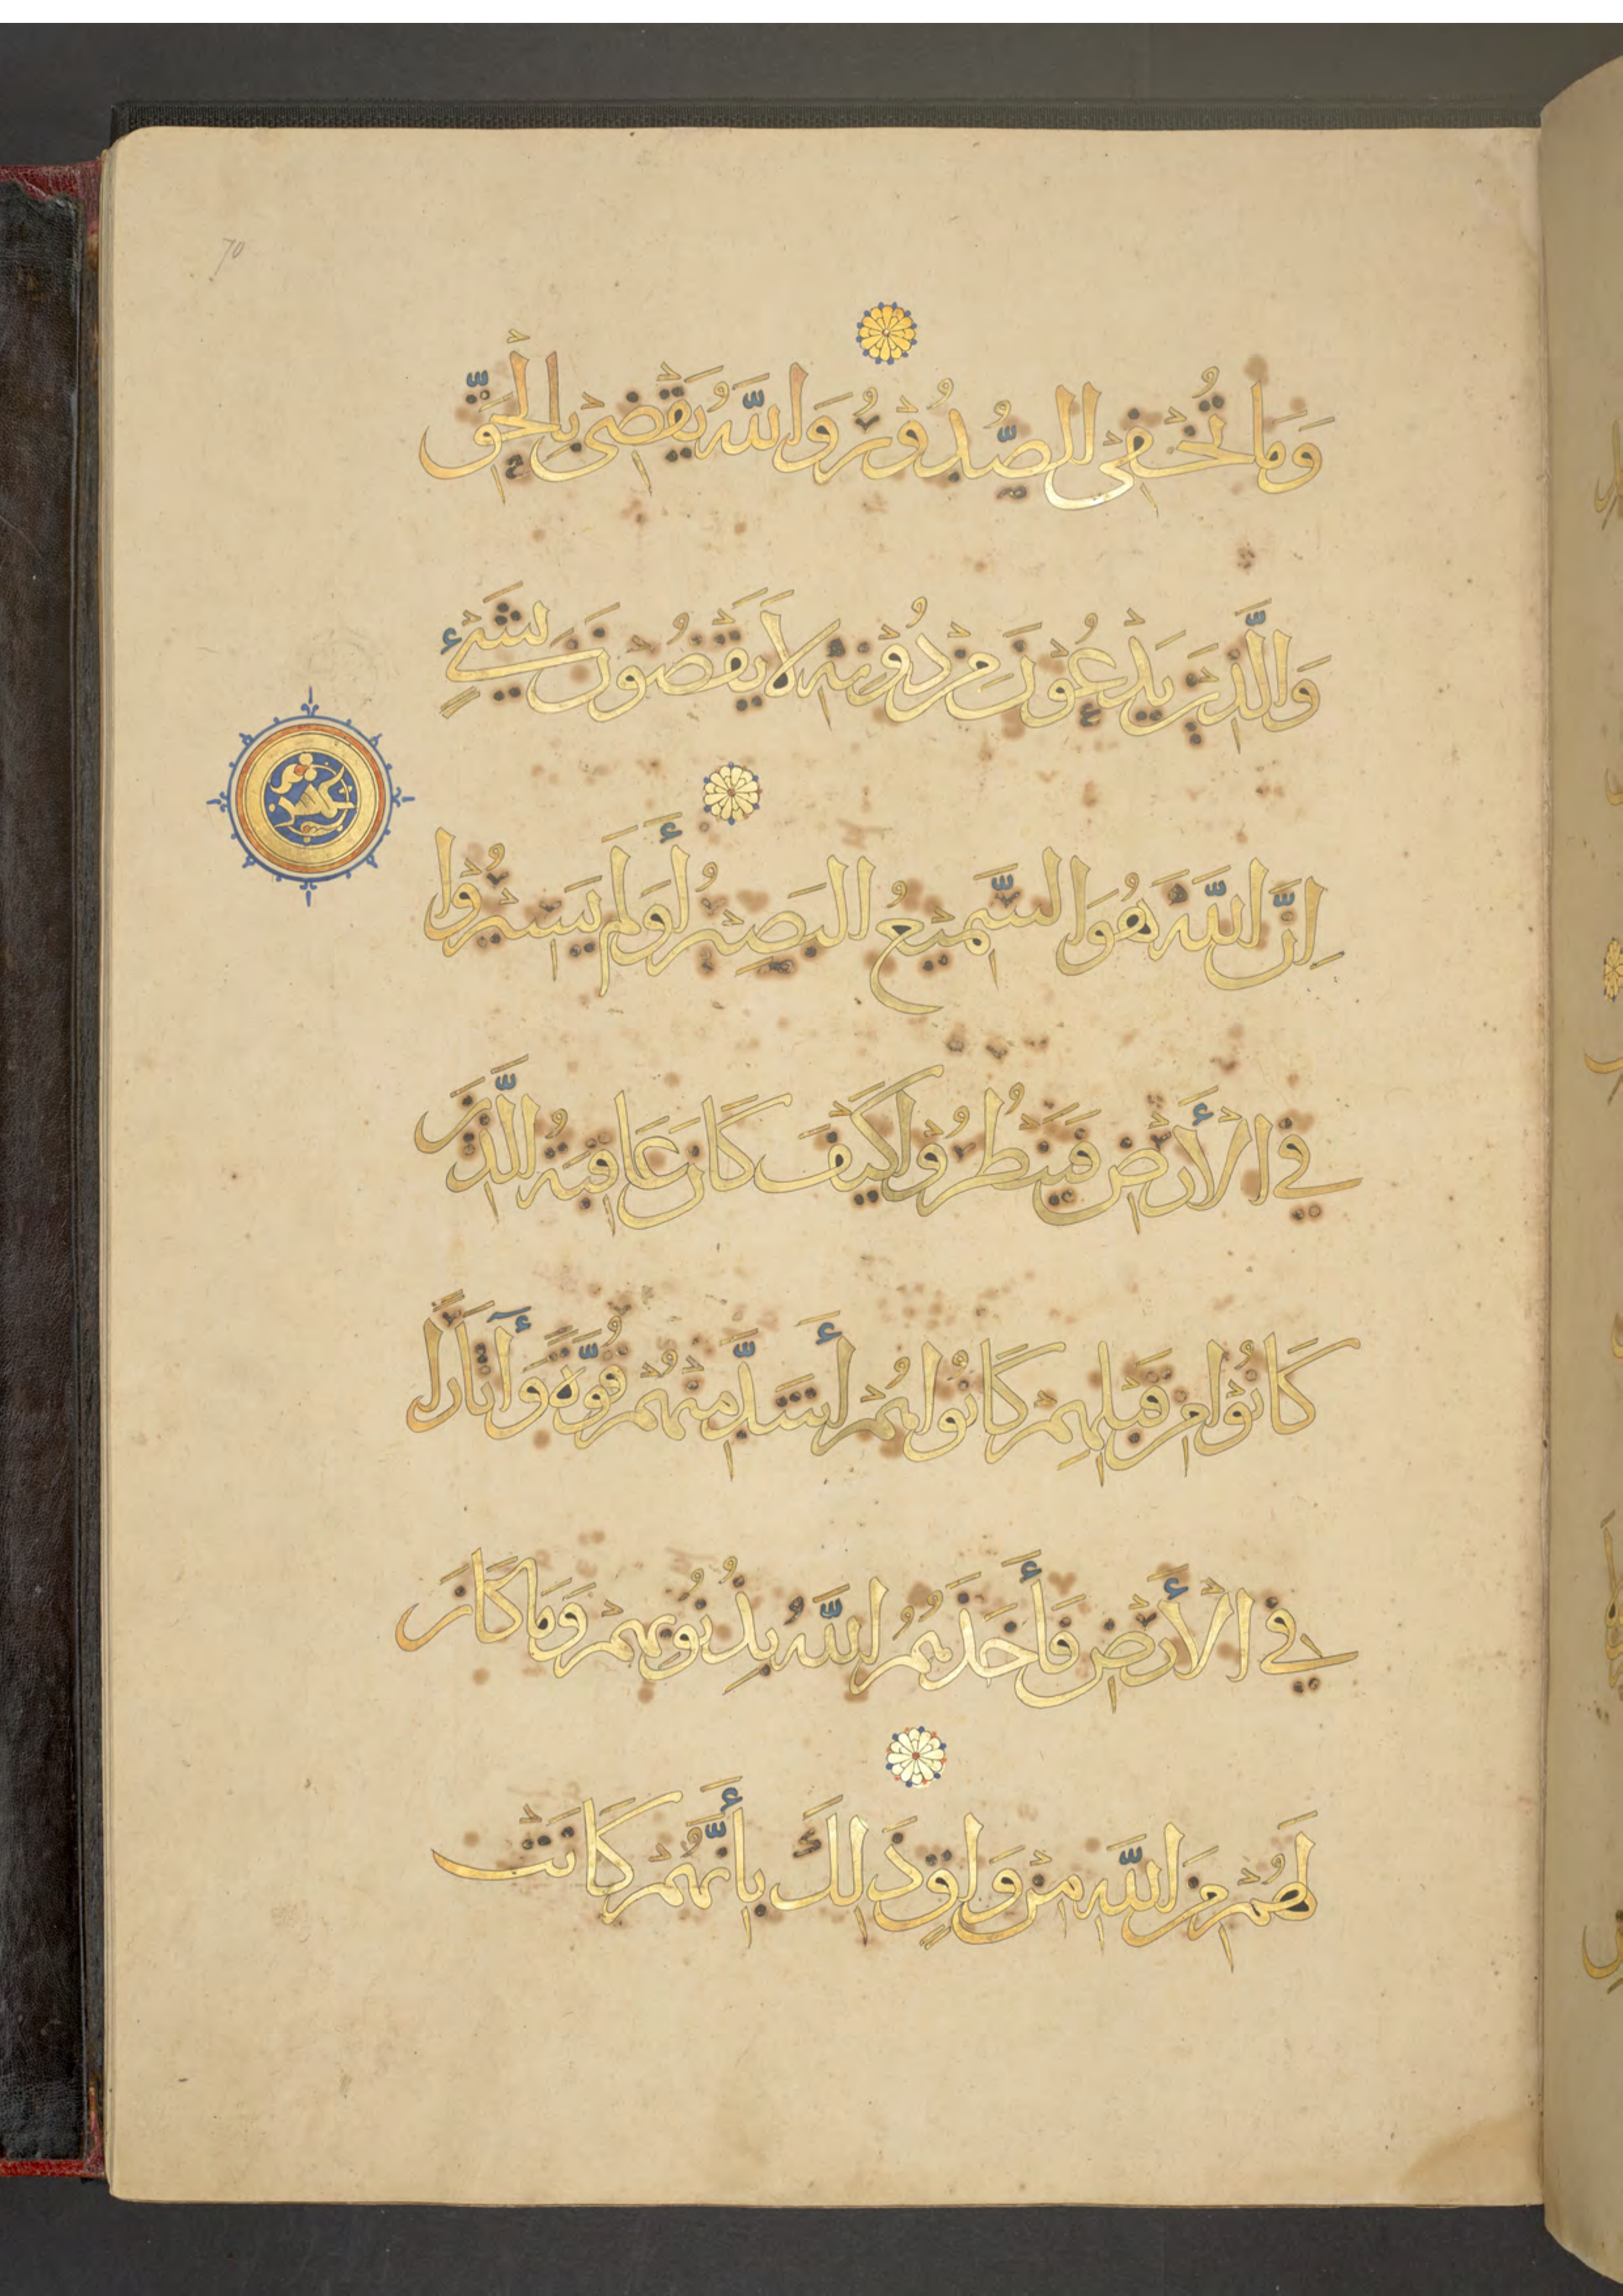 70
وَمَا تُخْفِى الصُّدُوْرُ وَاللَّهُ يَقْضِىْ بِالْحَقِّ
وَالَّذِيْنَ يَدْعُوْنَ مِنْ دُوْنِهِ لَا يَقْضُوْنَ بِشَىْءٍ
اِنَّ اللَّهَ هُوَ السَّمِيْعُ الْبَصِيْرُ أَوَلَمْ يَسِيْرُوْا
فِي الْأَرْضِ فَيَنْظُرُوْا كَيْفَ كَانَ عَاقِبَةُ الَّذِيْنَ
كَانُوْا مِنْ قَبْلِهِمْ كَانُوْا هُمْ أَشَدَّ مِنْهُمْ قُوَّةً وَأٰثَارًا
فِي الْأَرْضِ فَأَخَذَهُمُ اللَّهُ بِذُنُوْبِهِمْ وَمَا كَانَ
لَهُمْ مِنَ اللَّهِ مِنْ وَاقٍ ذَلِكَ بِأَنَّهُمْ كَانَتْ